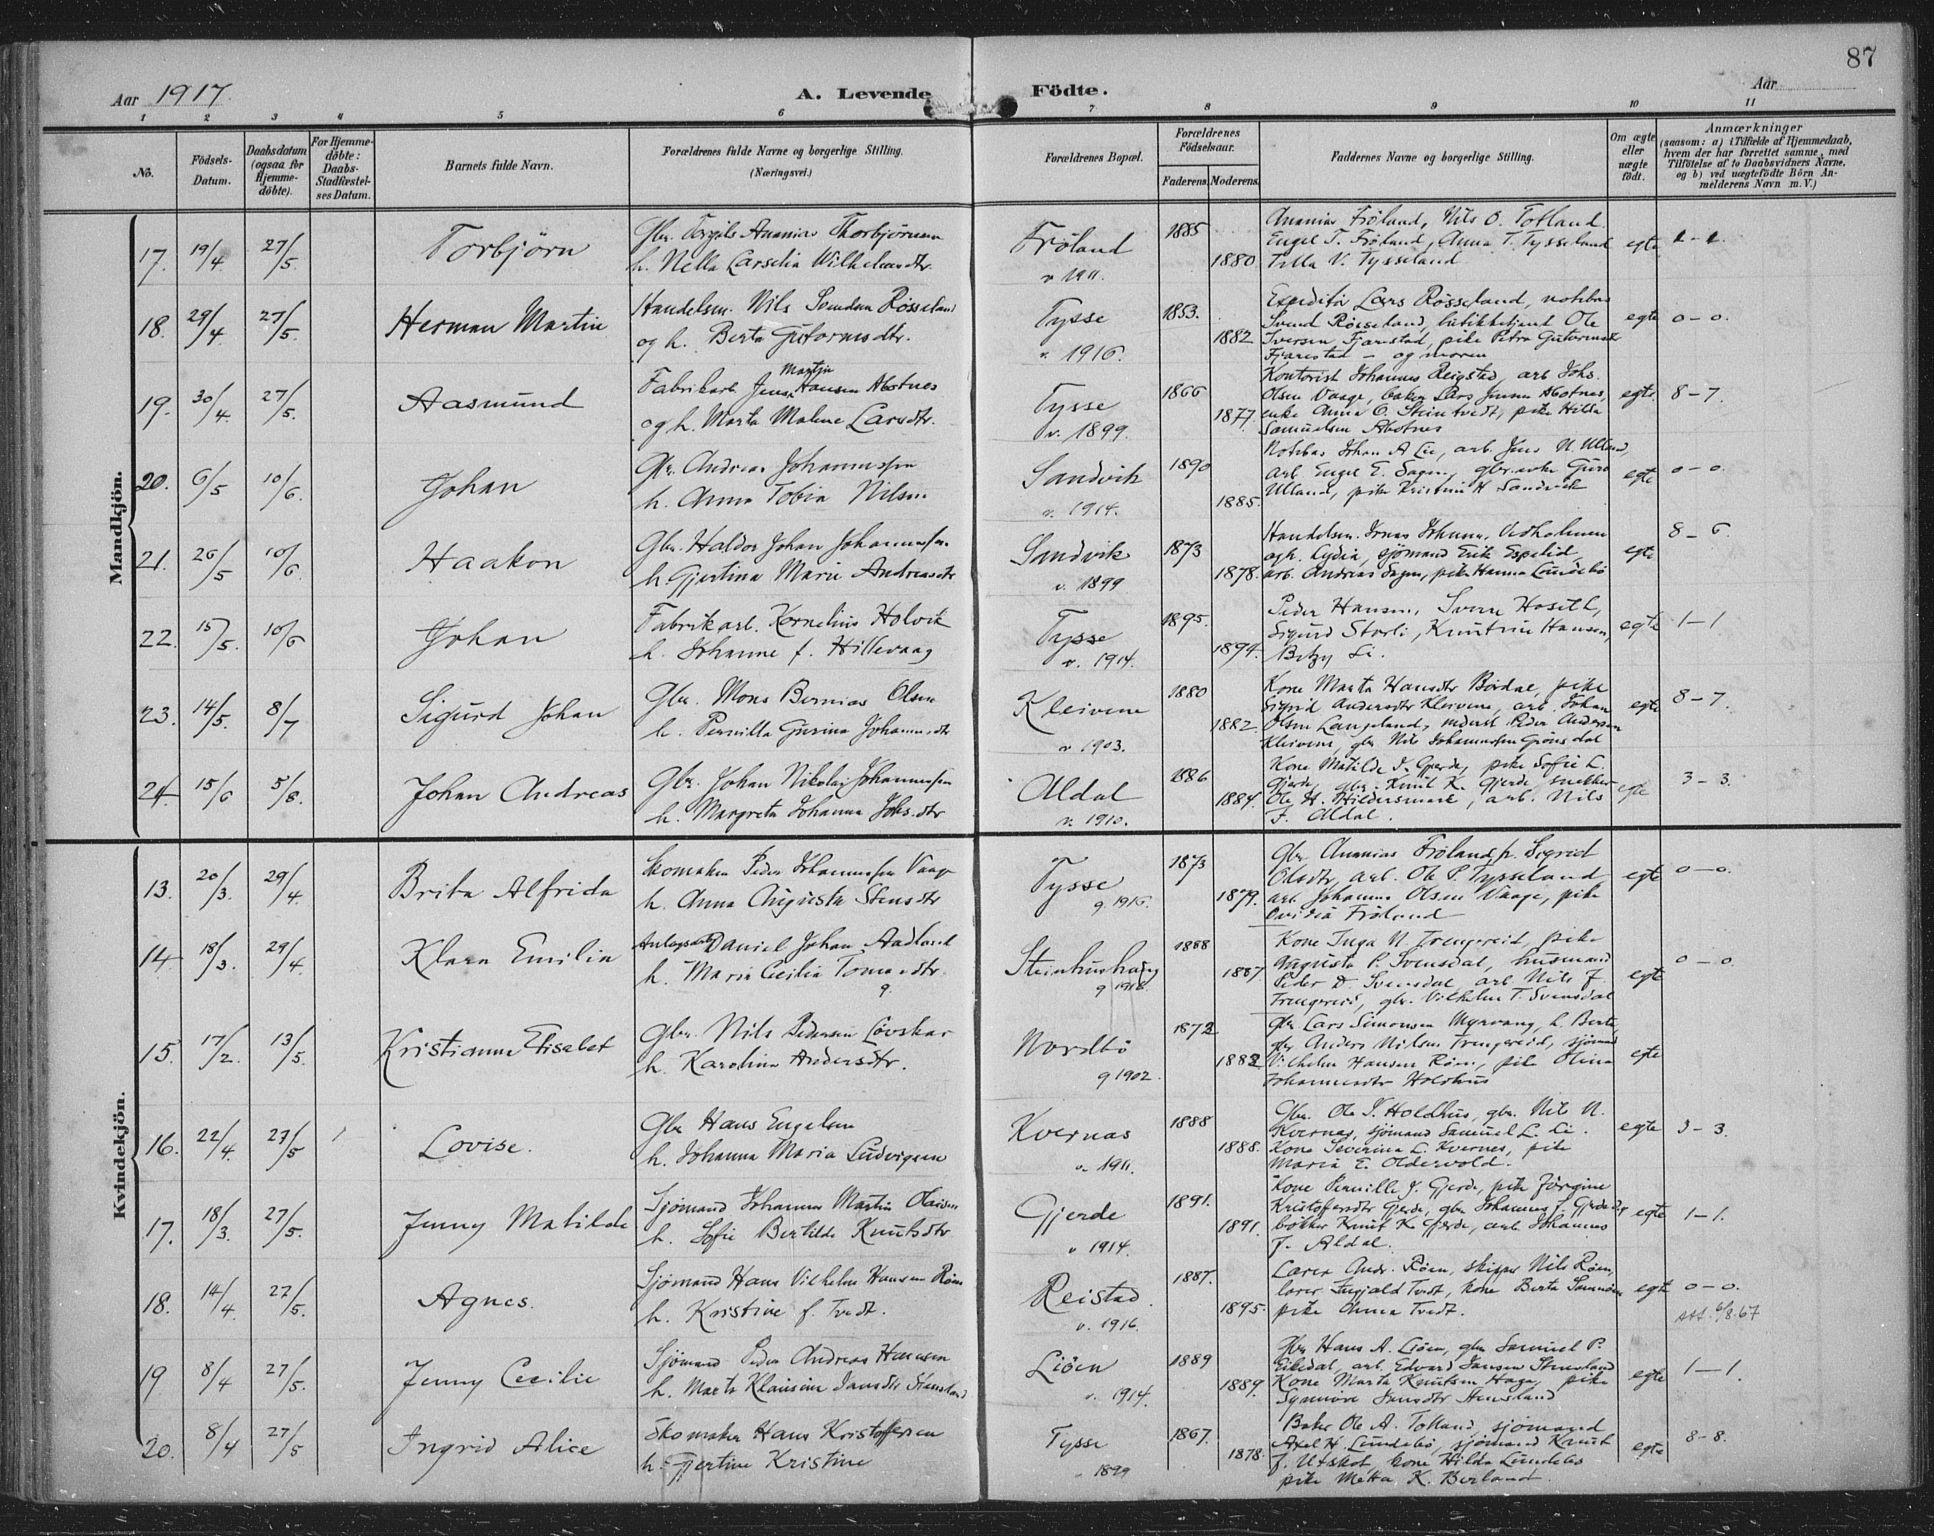 87
Aar 1917.
A. Levende Födte.
Aar
1 2 3 4 5 6 7 8 9 10 11
No.
Födsels-Datum.
Daabsdatum (ogsaa for Hjemme-döbte).
For Hjemme-döbte: Daabs-Stadfæstel-ses Datum.
Barnets fulde Navn.
Forældrenes fulde Navne og borgerlige Stilling.
(Næringsvei.)
Forældrenes Bopæl.
Forældrenes Födselsaar.
Faderens. Moderens.
Faddernes Navne og borgerlige Stilling.
Om ægte eller uægte födt.
Anmærkninger
(saasom: a) i Tilfælde af Hjemmedaab, hvem der har forrettet samme, med Tilföielse af to Daabsvidners Navne, og b) ved uægtefödte Börn Anmelderens Navn m. V.)
Mandkjön.
17. 19/4 27/5 Torbjørn
Gbr. Torgils Ananias Thorbjørnsen
h. Nella Larselia Wilhelmsdtr.
Frøland v 1911. 1885 1880
Ananias Frøland, Nils O. Totland
Engel T. Frøland, Anna T. Tysseland
Tilla V. Tysseland
egte
18. 29/4 27/5. Herman Martin
Handelsm. Nils Svendsen Røsseland
og h. Berta Gutormsdtr.
Tysse v. 1916. 1853. 1882
Expeditør Lars Røsseland, notebas
Svend Røisseland, butikbetjent Ole
Iversen Fjarestad, pike Petra Gutormsd
Fjarestad – og moren
egte 0 – 0.
19. 30/4. 27/5. Aasmund
Fabrikarb. Jens Martin Hansen Abotnes
og h. Marta Malene Larsdtr.
Tysse v. 1899. 1866 1877
Kontorist Johannes Reigstad, arb. Johs.
Olsen Vaage, baker Lars Jensen Abotnes,
enke Anna O. Steintvedt, pike Hilda
Samuelsen Abotnes
egte. 8 – 7.
20. 6/5 10/6. Johan
Gbr. Andreas Johannessen
h. Anna Tobia Nilsen
Sandvik v. 1914. 1890 1885.
Notebas Johan A Lie, arb. Jens N. Ulland,
arb. Engel E. Sagen, gbr.enke Guro
Ulland, pike Kristine H Sandvik
egte 0 – 0.
21. 26/5 10/6. Haakon
Gbr. Haldor Johan Johannessen.
h. Gjertina Marie Andreasdtr
Sandvik v. 1899 1873 1878.
Handelsm. Jonas Johannes. Adholmen
og h. Lydia, sjømand Erik Espelid
arb. Andreas Sagen, pike Hanna Lundebø
egte 8 – 6.
22. 15/5. 10/6 Johan
Fabrikarb. Kornelius Holvik
h. Johanne f. Hillevaag
Tysse v. 1914. 1895. 1894.
Peder Hansen, Sverre Hoseth,
Sigurd Storli, Knutrine Hansen,
Betzy Li.
egte 1 – 1
23. 14/5. 8/7 Sigurd Johan
Gbr. Mons Bernias Olsen
h. Pernilla Gurina Johannesdtr
Kleivene v 1903. 1880 1882.
Kone Marta Hansdtr Børdal, pike
Sigrid Andersdtr Kleivene, arb. Johan
Olsen Langeland, inderst Peder Andersen
Kleivene, gbr Nils Johannessen Grønsdal
egte 8 – 7.
24 15/6 5/8. Johan Andreas
Gbr. Johan Nikolai Johannessen
h. Margreta Johanna Johs.dtr
Aldal v. 1910. 1886 1884.
Kone Matilde J. Gjerde, pike Sofie L.
Gjerde, gbr. Knut K. Gjerde, snekker
Ole H. Hildersmark, arb. Nils
J. Aldal.
egte 3 – 3.
Kvindekjön.
13. 20/3. 29/4. Brita Alfrida
Skomaker Peder Johannessen Vaage
h. Anna Augusta Stensdtr
Tysse g 1915. 1873 1879.
Gbr Ananias Frøland, h. Sigrid
Olsdtr, arb. Ole P. Tysseland
arb Johannes Olsen Vaage, pike
Ovidia Frøland
egte 0 – 0.
14 18/3. 29/4 Klara Emilia
Anlægsarb Daniel Johan Aadland
h. Maria Cecilia Tomasdtr.
Steinhushaug 1888 1887
Kone Inga N. Trengereid, pike
Augusta P. Svensdal, husmand
Peder D. Svensdal, arb. Nils J.
Trengereid, gbr. Vilhelm T. Svensdal
egte 0 – 0.
15. 17/2. 13/5. Kristianne Elisabet
Gbr. Nils Pedersen Løvskar
h. Karolina Andersdtr.
Nordbø g 1902. 1872 1882
gbr Lars Simonsen Myrvang, h. Berta,
gbr Anders Nilsen Trengereid, sjømand
Vilhelm Hansen Røen, pike Olina
Johannesdtr Holdhus
egte
16. 22/4. 27/5 Lovise.
Gbr Hans Engelsen
h. Johanna Maria Ludvigsen
Kvernas v. 1911. 1888 1888.
Gbr. Ole J. Holdhus, gbr. Nils N.
Kvernas, sjømand Samuel L. Li.
Kone Severina L. Kvernes, pike
Maria E. Oldervold.
egte 3 – 3.
17. 18/3. 27/5. Jenny Matilde
Sjømand Johannes Martin Olaisen
h. Sofie Bertilde Knutsdtr
Gjerde v 1914. 1891. 1891.
Kone Pernille J. Gjerde, pike Jørgine
Kristofersdtr Gjerde, gbr Johannes J. Gjerde
bøkker Knut K. Gjerde, arb Johannes
J. Aldal.
egte 1 – 1.
18. 14/4. 27/5. Agnes.
Sjømand Hans Vilhelm Hansen Røen
h. Kristine f. Tvedt.
Reistad. v. 1916. 1887. 1895.
Røen, skipper Nils Røen,
Tvedt, kone Berta
pike Anna Tvedt.
egte 0 – 0.
Att. 6/8.67
19 8/4 27/5. Jenny Cecilie
Sjømand Peder Andreas Hansen
h. Marta
Liöen v. 1914. 1889 1889.
Gbr Hans A. Liöen, gbr Samuel P.
Eikedal, arb. Edvard Jansen Stensland
Kone Marta Knutsen Haga, pike
Synnøve Jansdtr Stensland
egte 1 – 1.
20. 8/4 27/5 Ingrid Alice
Skomaker Hans Kristoffersen
h. Gjertine Kristine
Tysse 1899 1867. 1878.
Baker Ole A. Totland, sjømand
Axel H. Lundebø, sjømand Knut
J. Utskot, kone Hilda Lundebø
pike Metta K. Berland.
egte 8 – 8.